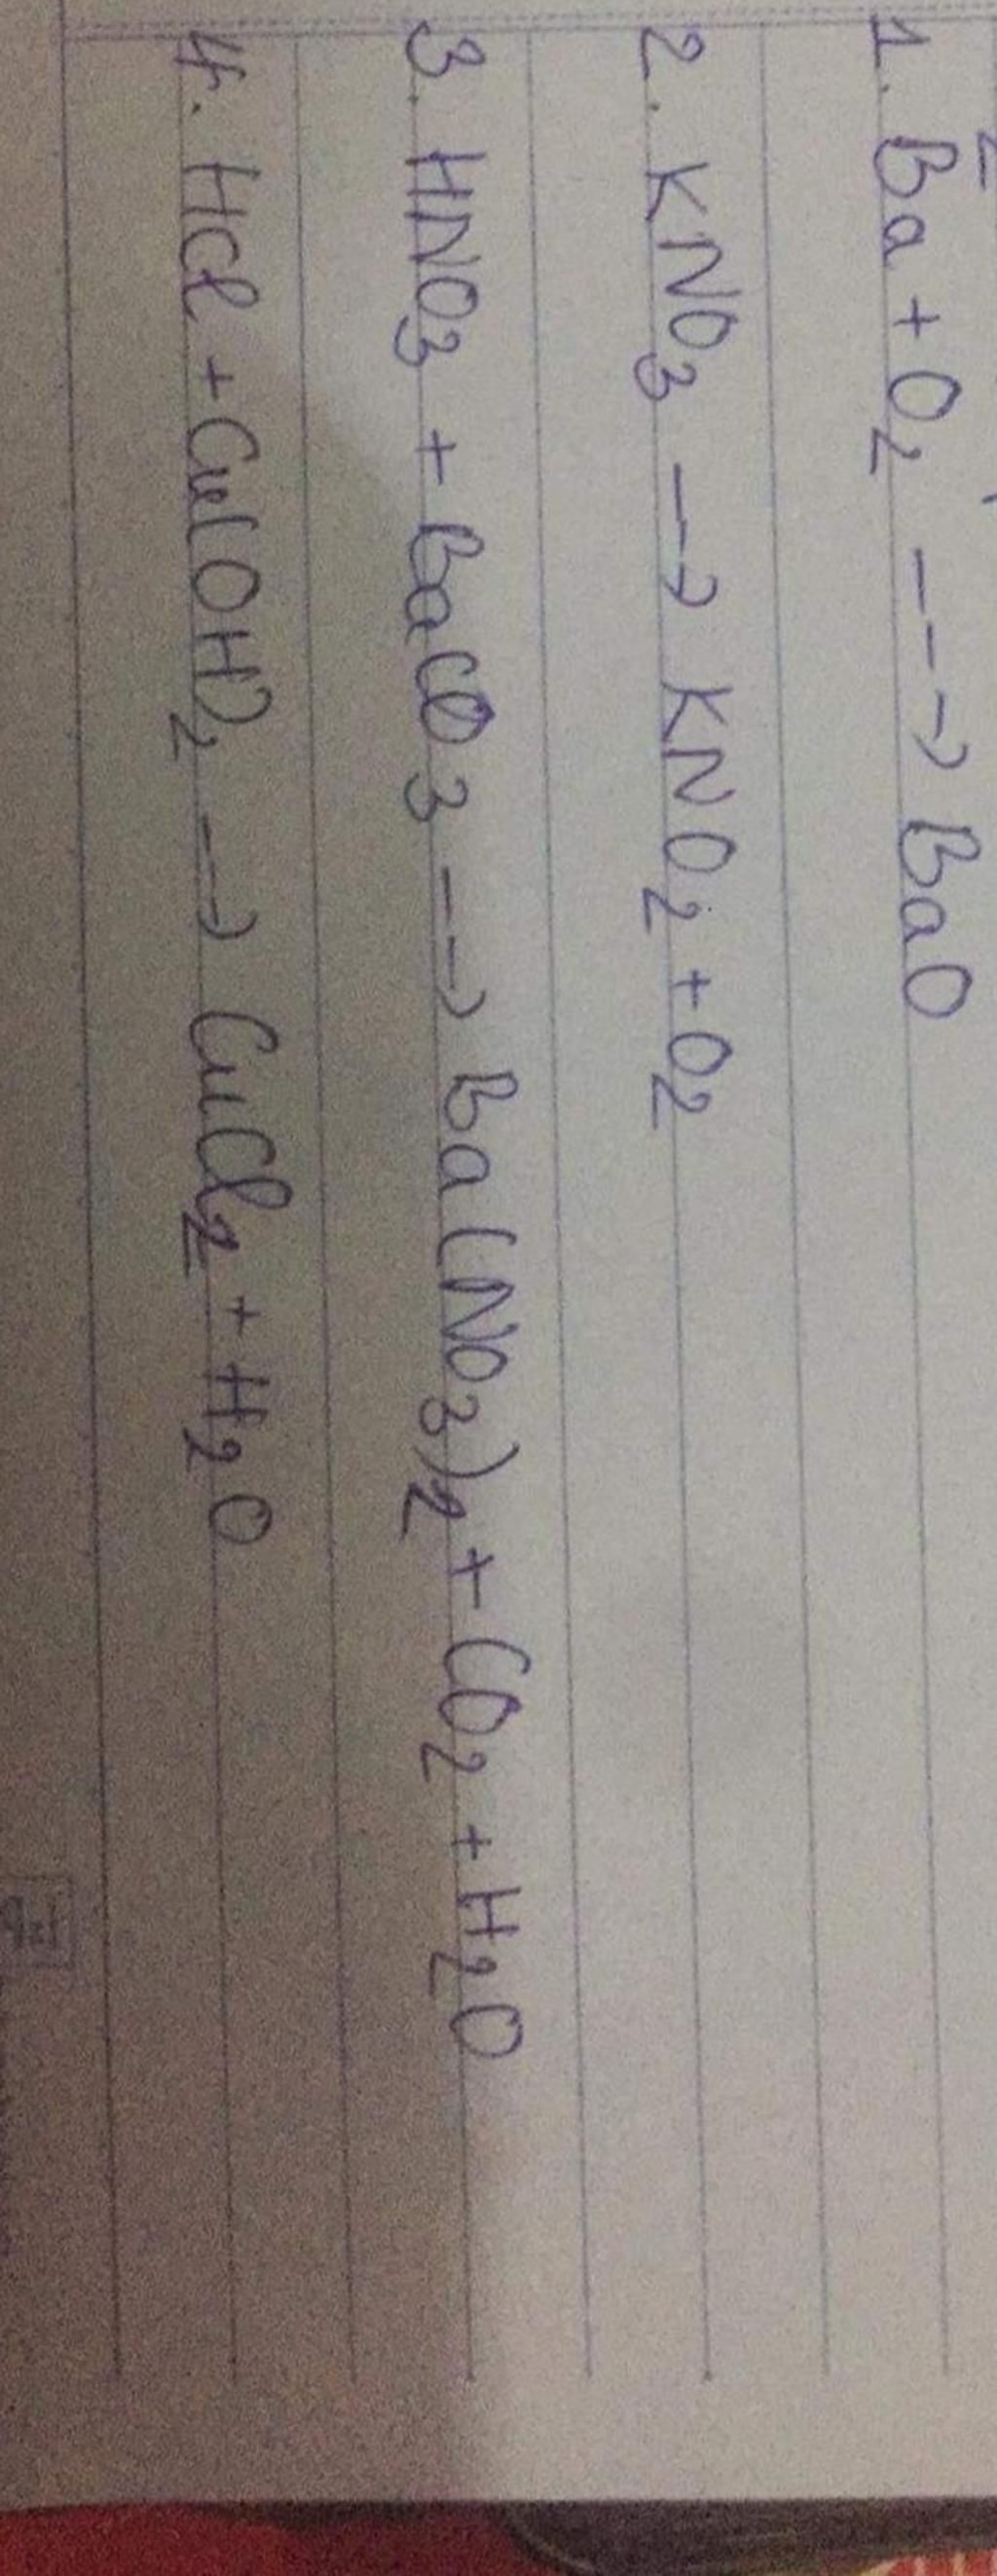 1. Ba + O2 ---> BaO
2. KNO3 --> KNO2 + O2
3. HNO3 + BaCO3 ---> Ba(NO3)2 + CO2 + H2O
4. HCl + Cu(OH)2 --> CuCl2 + H2O